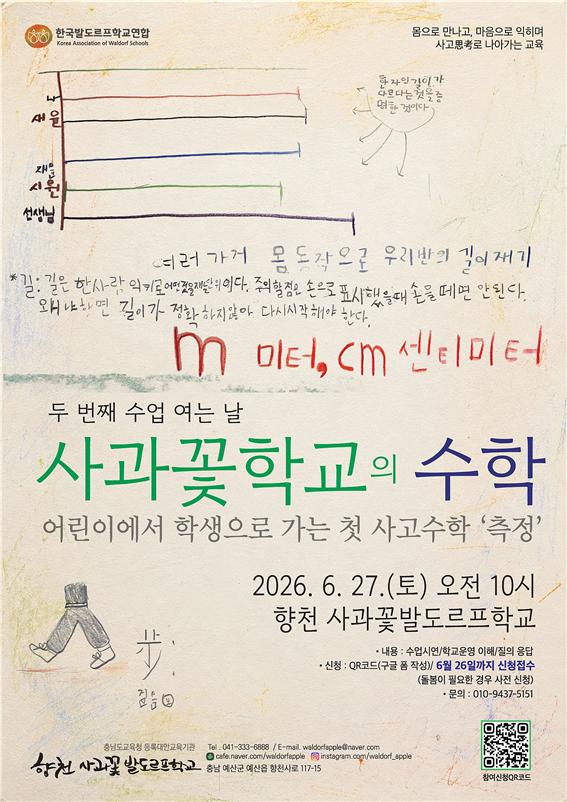 한국발도르프학교연합
Korea Association of Waldorf Schools
몸으로 만나고, 마음으로 익히며
사고思考로 나아가는 교육
나
새윤
재민
시원
선생님
환 자의 길이가
다르다는 것을 증
명한 것이다.
여러 가지 몸동작으로 우리반의 길이재기
*길: 길은 한사람의 키로 어떤것을 재는 단위이다. 주의할점은 손으로 표시했을때 손을 떼면 안된다.
왜냐하면 길이가 정확하지않아 다시시작해야 한다.
m 미터, cm 센티미터
두 번째 수업 여는 날
사과꽃학교의 수학
어린이에서 학생으로 가는 첫 사고수학 '측정'
2026. 6. 27.(토) 오전 10시
향천 사과꽃발도르프학교
• 내용 : 수업시연/학교운영 이해/질의 응답
• 신청 : QR코드(구글 폼 작성)/ 6월 26일까지 신청접수
(돌봄이 필요한 경우 사전 신청)
• 문의 : 010-9437-5151
步:
걸음 보
충남도교육청 등록대안교육기관
향천 사과꽃 발도르프학교
Tel . 041-333-6888 / E-mail. waldorfapple@naver.com
cafe.naver.com/waldorfapple instagram.com/waldorf_apple
충남 예산군 예산읍 향천사로 117-15
참여신청QR코드